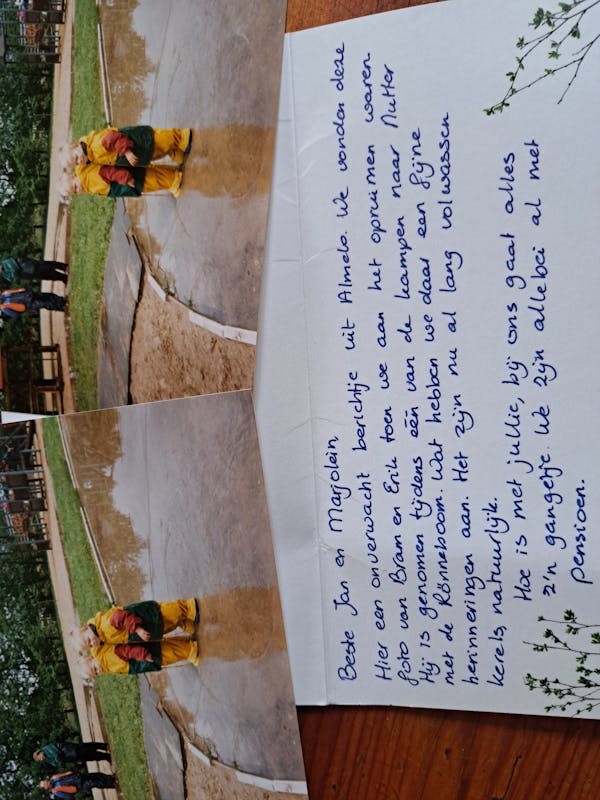 Beste Jan en Marjolein,
Hier een onverwacht berichtje uit Almelo. We vonden deze
foto van Bram en Erik toen we aan het opruimen waren.
Hij is genomen tijdens één van de kampen naar Nutter
met de Rönneboom. Wat hebben we daar een fijne
herinneringen aan. Het zijn nu al lang volwassen
kerels natuurlijk.
Hoe is met jullie, bij ons gaat alles
z'n gangetje. We zijn allebei al met
pensioen.